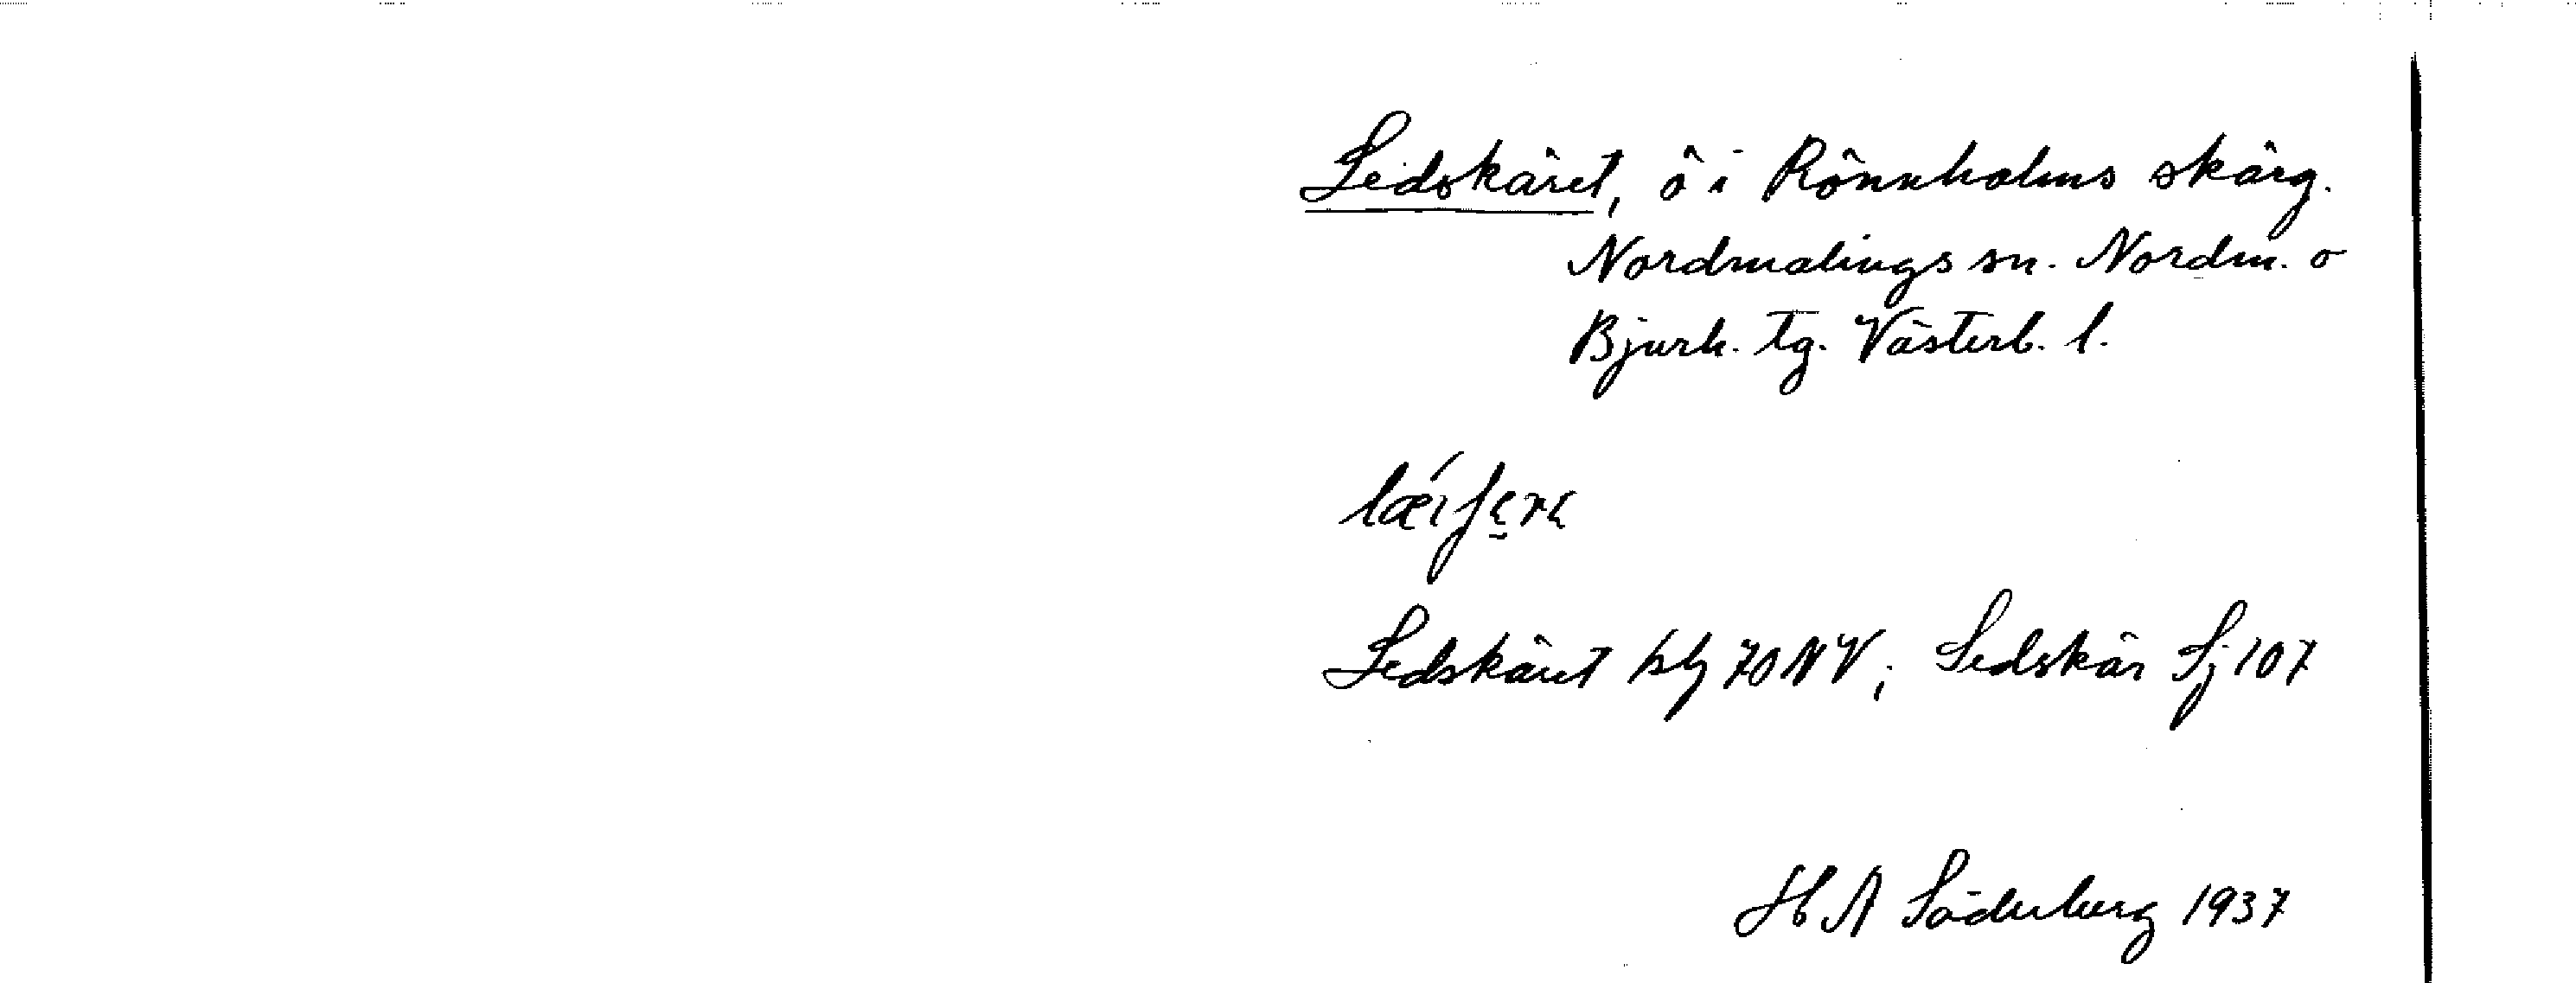 Ledskäret, ö i Rönnholms skärg.
Nordmalings sn. Nordm. o
Bjurh. tg. Västerb. l.
Ledskäret 70 NV; Ledskär Sj 107
H A Söderberg 1937